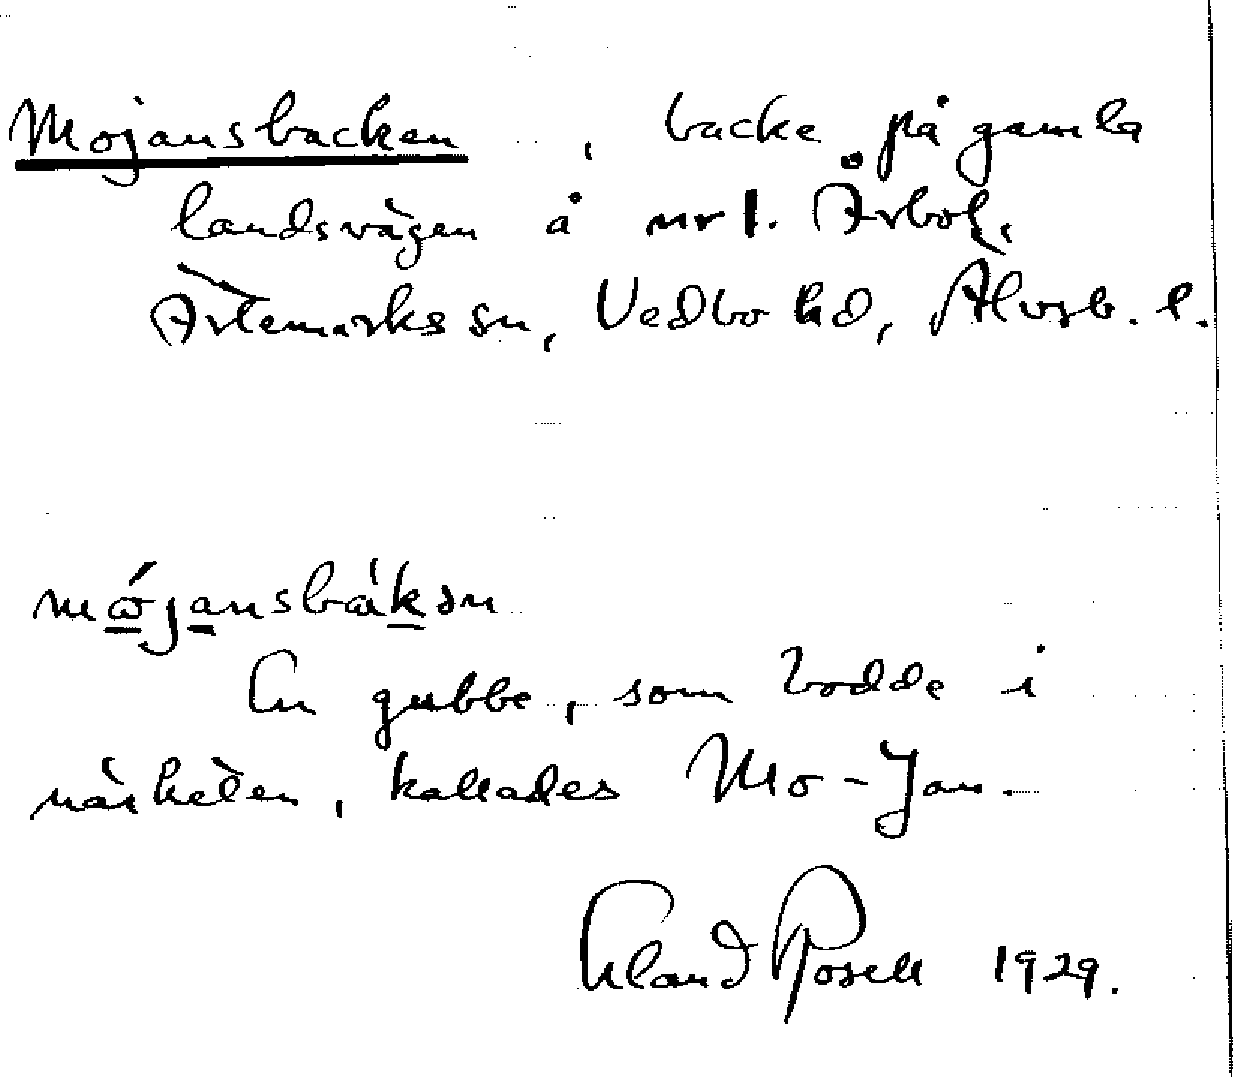 Mojansbacken, backe på gamla
landsvägen å nr 1. Årbol,
Ärtemarks sn, Vedbo hd, Älvsb. l.
mójansbákən
En gubbe, som bodde i
närheten, kallades Mo-Jan.
Erland Rosell 1929.